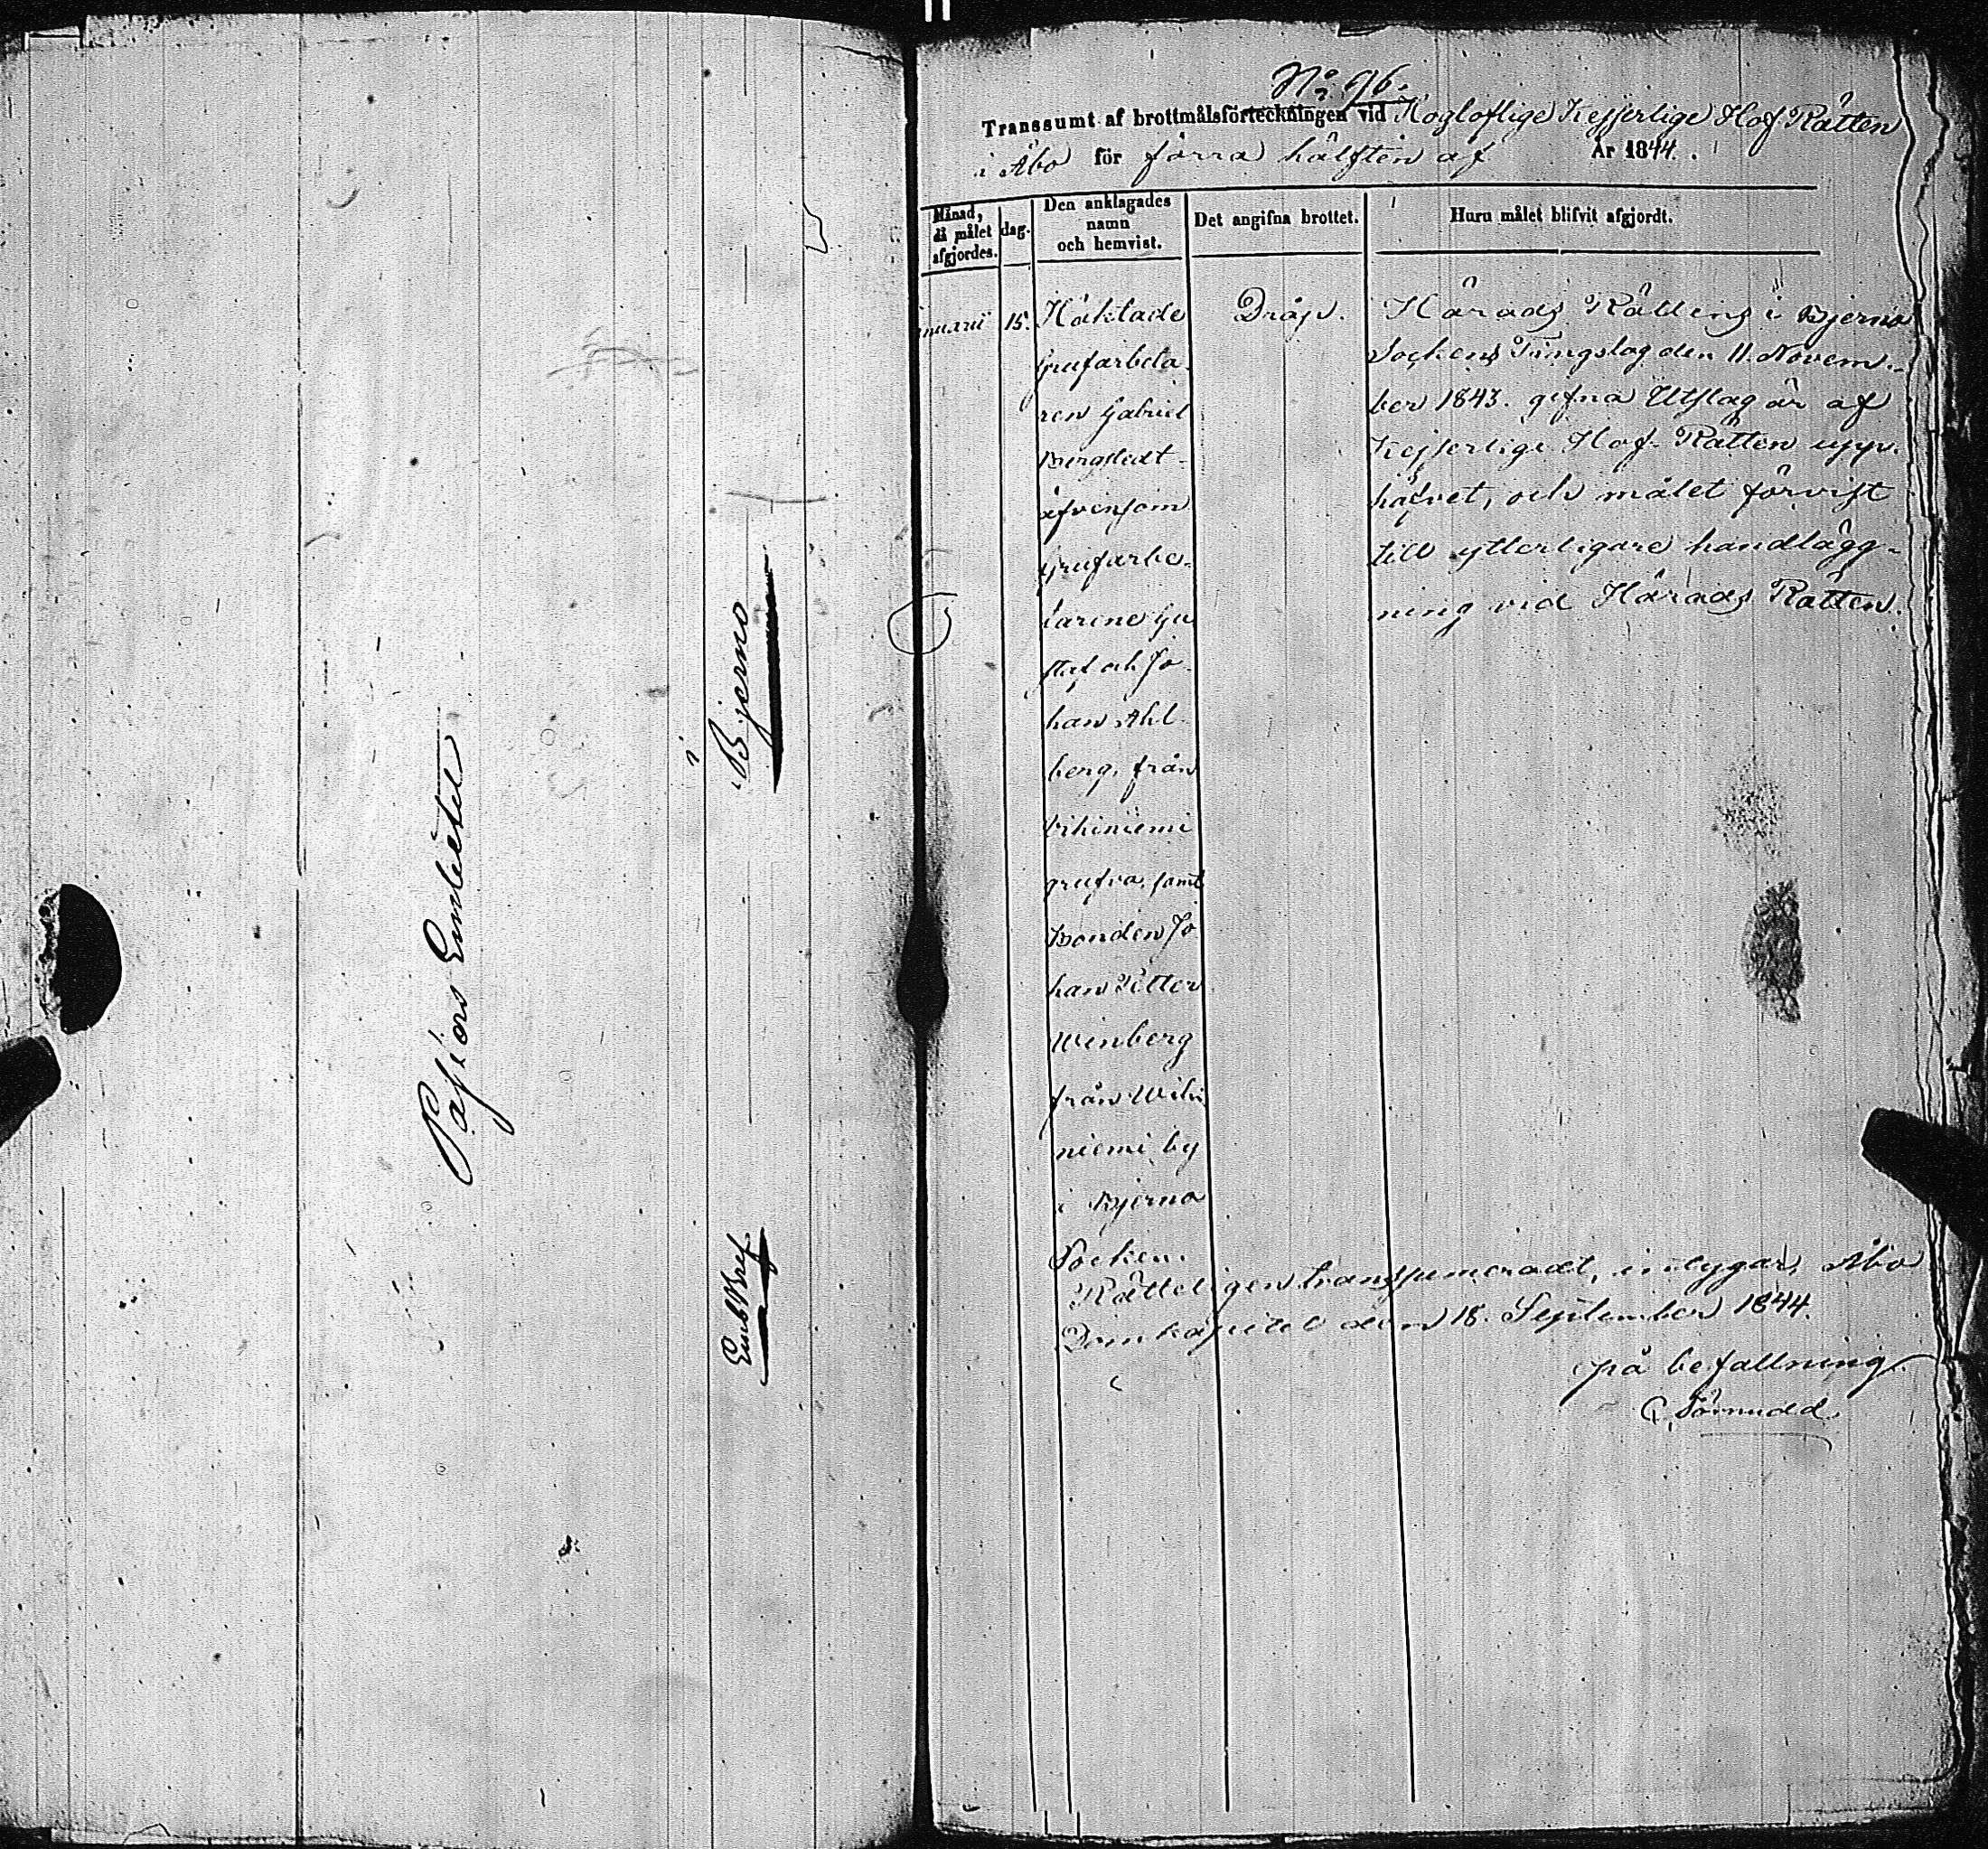 Pastors Embetet
i
Bjerno
Emb. Bref
No 96.
Transsumt af brottmålsförteckningen vid Högloflige Kejserlige Hof Rätten
i Åbo för förra hälften af År 1844.
Månad, då målet afgjordes.
dag.
Den anklagades namn och hemvist.
Det angifna brottet.
Huru målet blifvit afgjordt.
nuarii 15.
Häktade
Grufarbeta-
ren Gabriel
Bergstedt
äfvensom
Grufarbe-
tarene Gu
staf och Jo-
han Ahl-
berg, från
Vihiniemi
grufva, samt
Bonden Jo
han Petter
Winberg
från Wihi
niemi by
i Bjerno
Socken.
Dråp.
Härads Rättens i Bjerno
Sockens Tingslag den 11. Novem-
ber 1843. gifna Utslag är af
Kejserlige Hof-Rätten upp-
häfvet, och målet förvist
till ytterligare handlägg-
ning vid Härads Rätten.
Rätteligen transsumeradt, intygar, Åbo
Domkapitel den 18. September 1844.
på befallning
C. Törnudd